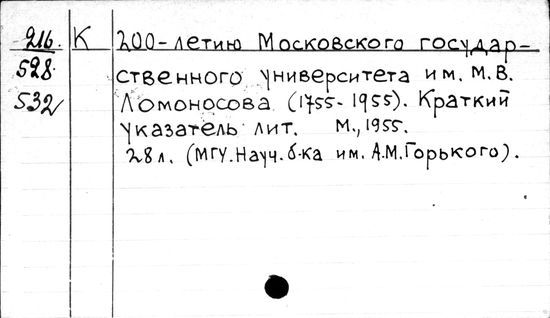 216. К 200-летию Московского государ-
528. ственного университета им. М.В.
532 Ломоносова (1755-1955). Краткий
указатель лит. М., 1955.
28 л. (МГУ. Науч. б-ка им. А.М. Горького).